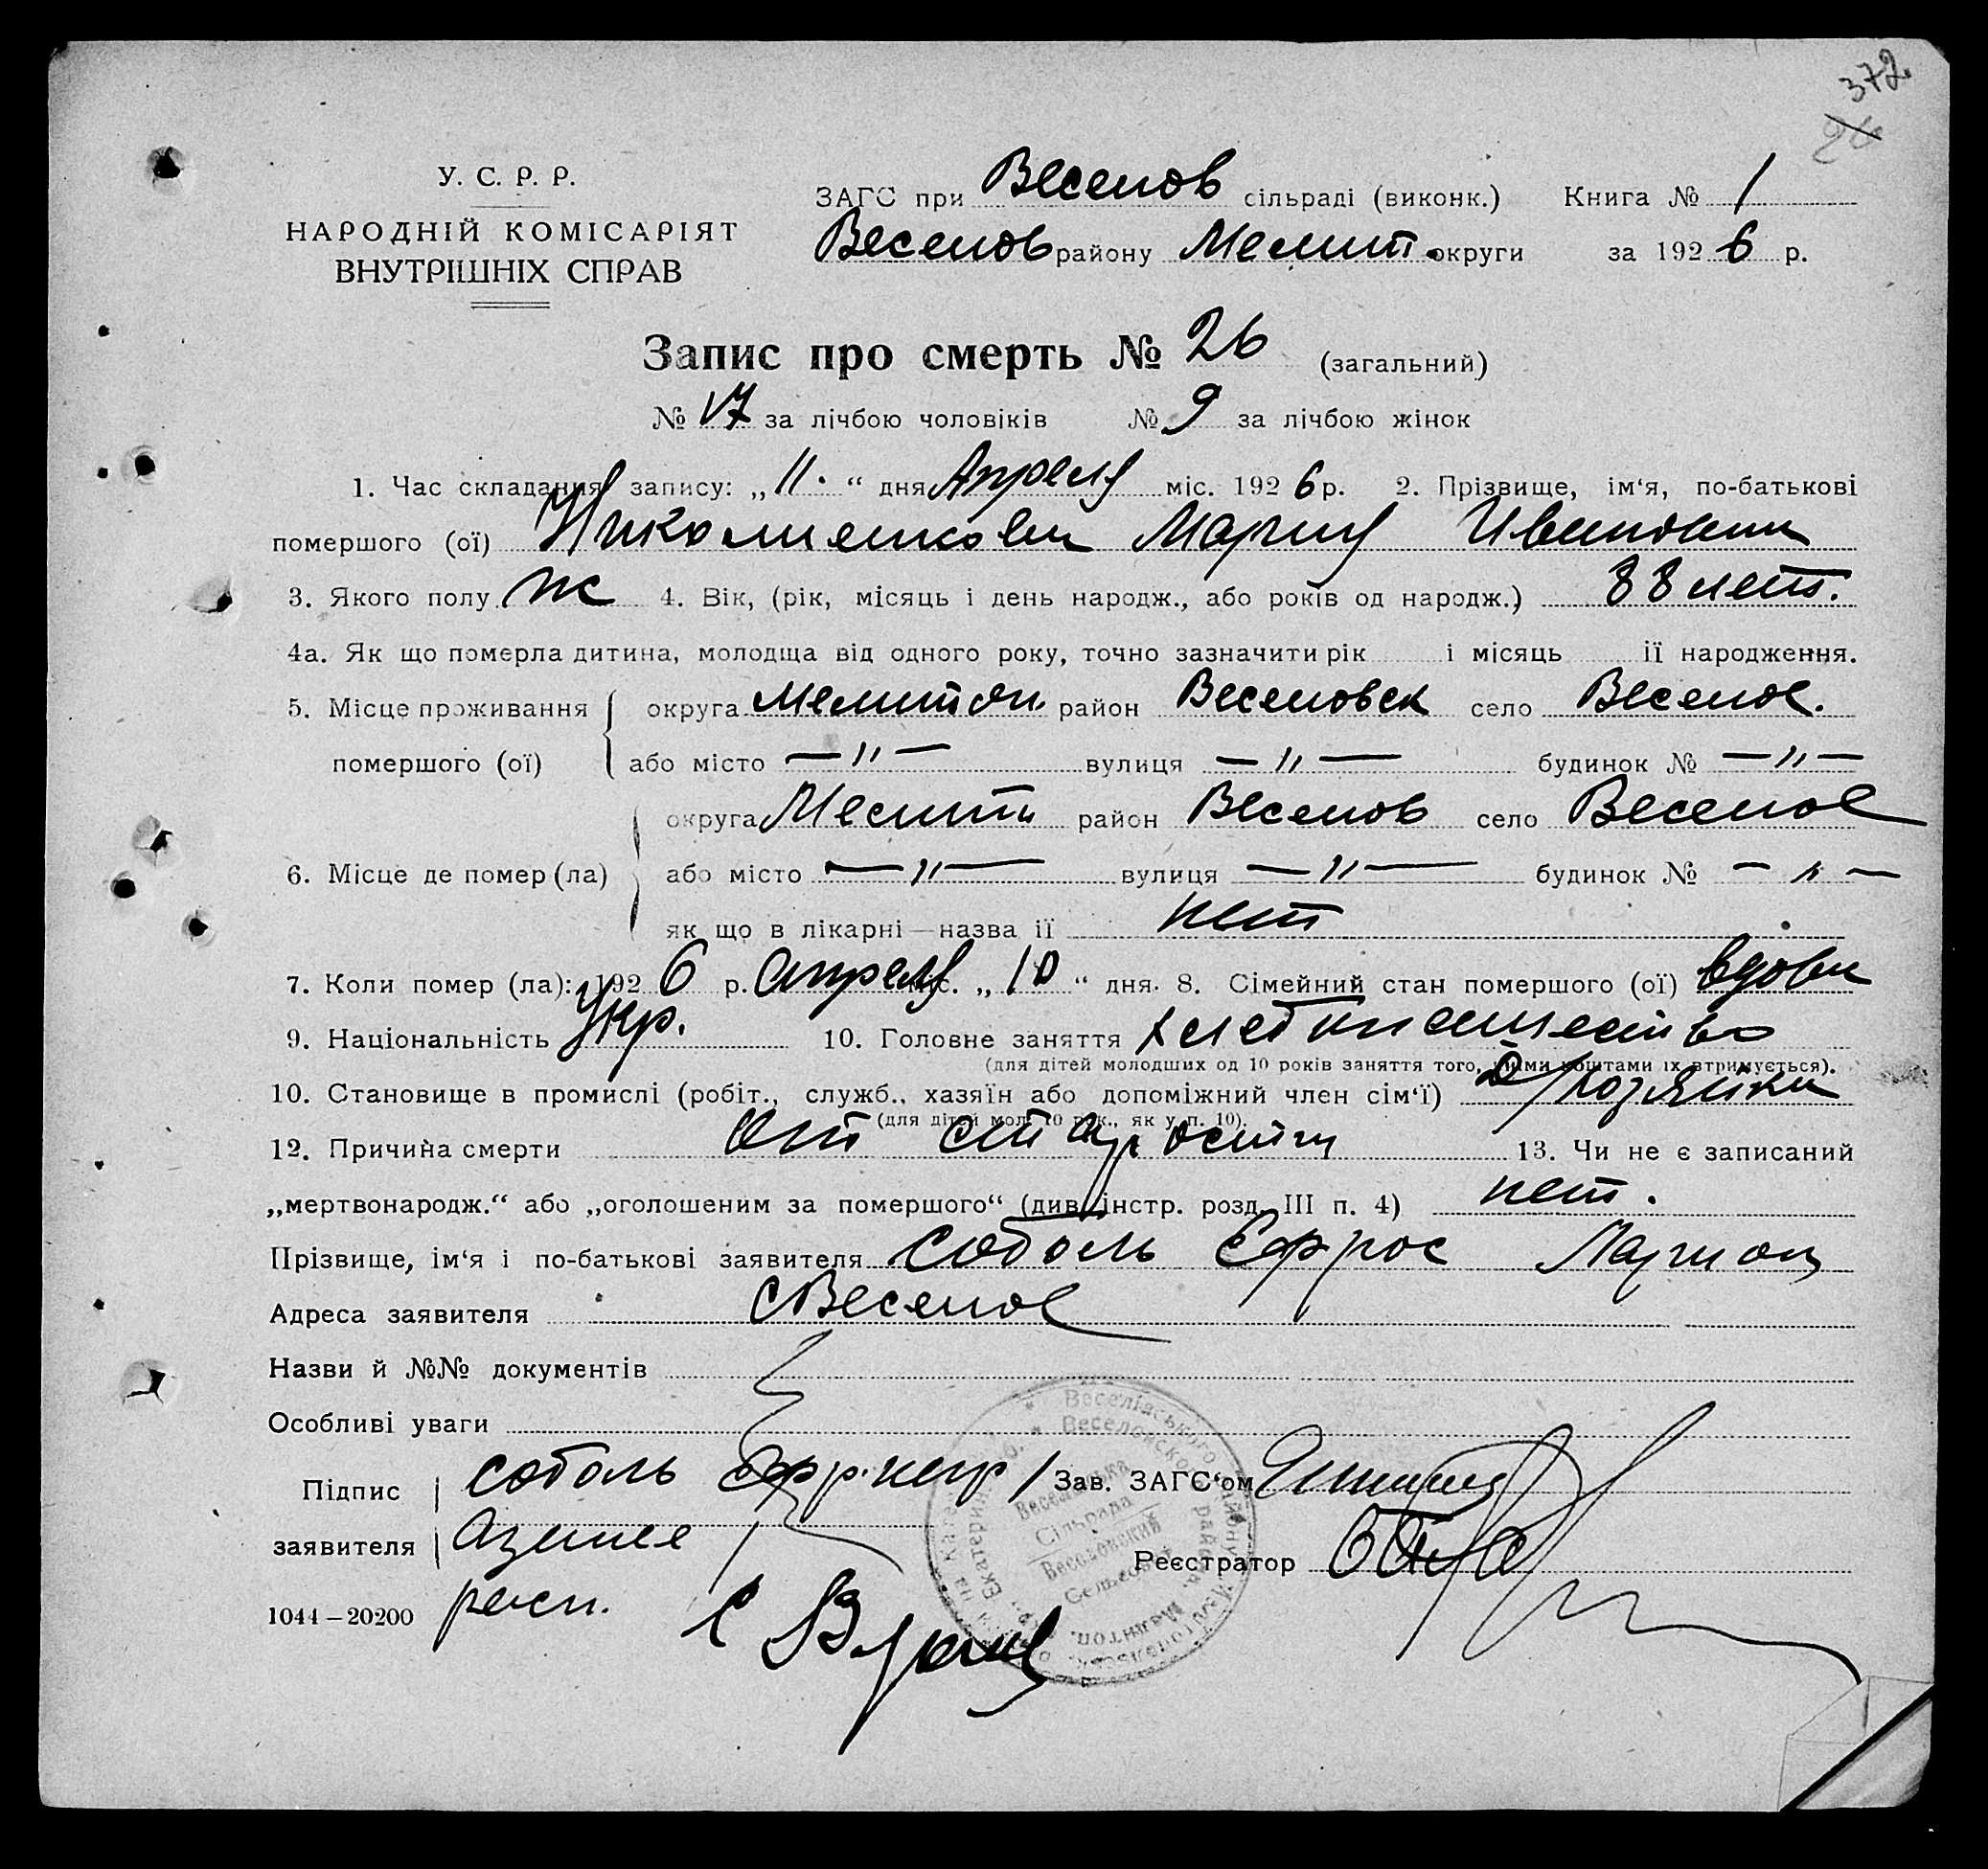 372.
24
У. С. Р. Р.
НАРОДНІЙ КОМІСАРІЯТ
ВНУТРІШНІХ СПРАВ
ЗАГС при Веселов сільраді (виконк.) Книга № 1
Веселов району Мелит. округи за 1926 р.
Запис про смерть № 26 (загальний)
№ 17 за лічбою чоловіків № 9 за лічбою жінок
1. Час складання запису: „11.“ дня Апреля міс. 1926 р. 2. Прізвище, ім‘я, по-батькові
помершого (ої) Николаенкова Мария Ивановна
3. Якого полу ж 4. Вік, (рік, місяць і день народж., або років од народж.) 88 лет.
4а. Як що померла дитина, молодща від одного року, точно зазначити рік і місяць ії народження.
5. Місце проживання округа Мелитоп. район Веселовск село Веселое.
помершого (ої) або місто —〃— вулиця —〃— будинок № —〃—
округа Мелит район Веселов село Веселое
6. Місце де помер (ла) або місто —〃— вулиця —〃— будинок № —〃—
як що в лікарні—назва ії нет
7. Коли помер (ла): 1926 р. апреля міс. „10“ дня. 8. Сімейний стан помершого (ої) вдова
9. Національність Укр. 10. Головне заняття хлебопашество
(для дітей молодших од 10 років заняття того, чиїми коштами іх втримується).
10. Становище в промислі (робіт., служб., хазяїн або допоміжний член сім‘ї) хозяйка
(для дітей мол. 10 рок., як у п. 10).
12. Причина смерти от старости 13. Чи не є записаний
„мертвонародж.“ або „оголошеним за помершого“ (див. інстр. розд. III п. 4) нет.
Прізвище, ім‘я і по-батькові заявителя Соболь Ефрос Ларион
Адреса заявителя с Веселое
Назви й №№ документів
Особливі уваги
Підпис Соболь Зав. ЗАГС‘ом
заявителя Реєстратор
1044—20200 росп.
Веселівського району
Веселовского района
Веселівська
Сільрада
Веселовский
Сельсовет
Мелитоп.